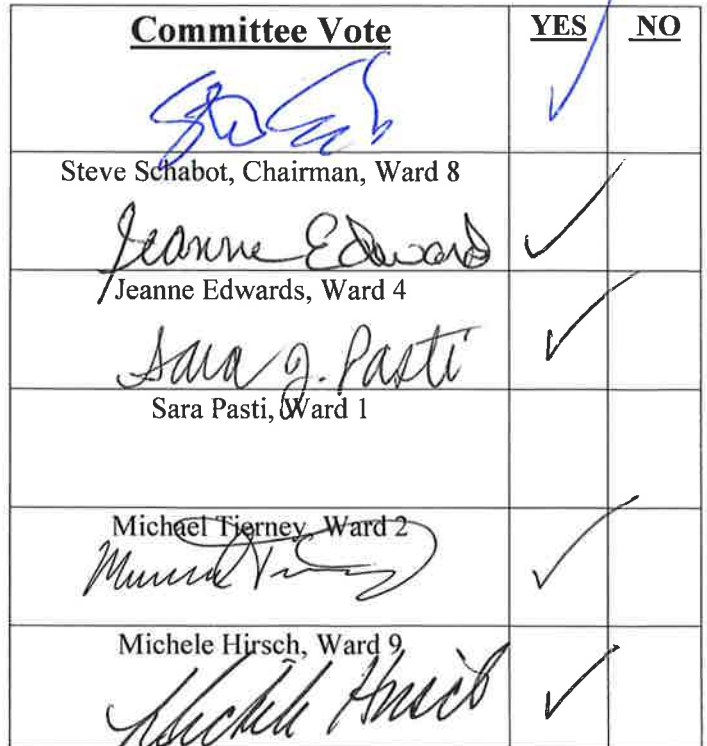 Committee Vote YES NO
Steve Schabot, Chairman, Ward 8
Jeanne Edwards
Jeanne Edwards, Ward 4
Sara J. Pasti
Sara Pasti, Ward 1
Michael Tierney, Ward 2
Michele Hirsch, Ward 9
Michele Hirsch